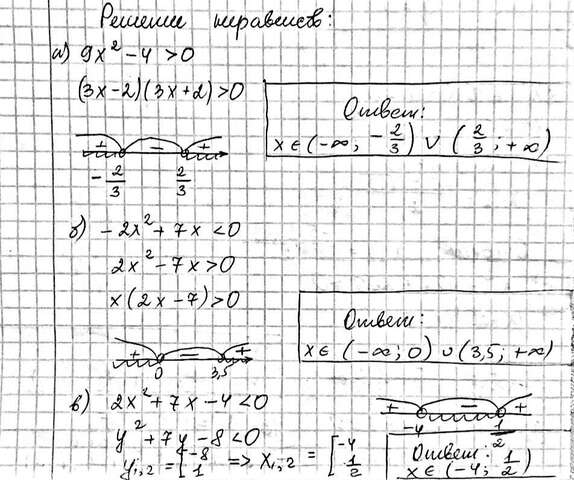 Решение неравенств:
а) 9x² - 4 > 0
(3x-2)(3x+2) > 0
+ - +
-2/3 2/3
Ответ:
x ∈ (-∞; -2/3) ∪ (2/3; +∞)
б) -2x² + 7x < 0
2x² - 7x > 0
x(2x-7) > 0
+ - +
0 3,5
Ответ:
x ∈ (-∞; 0) ∪ (3,5; +∞)
в) 2x² + 7x - 4 < 0
y² + 7y - 8 < 0
y₁,₂ = [-8 1 => x₁,₂ = [-4 1/2
+ - +
-4 1/2
Ответ:
x ∈ (-4; 1/2)